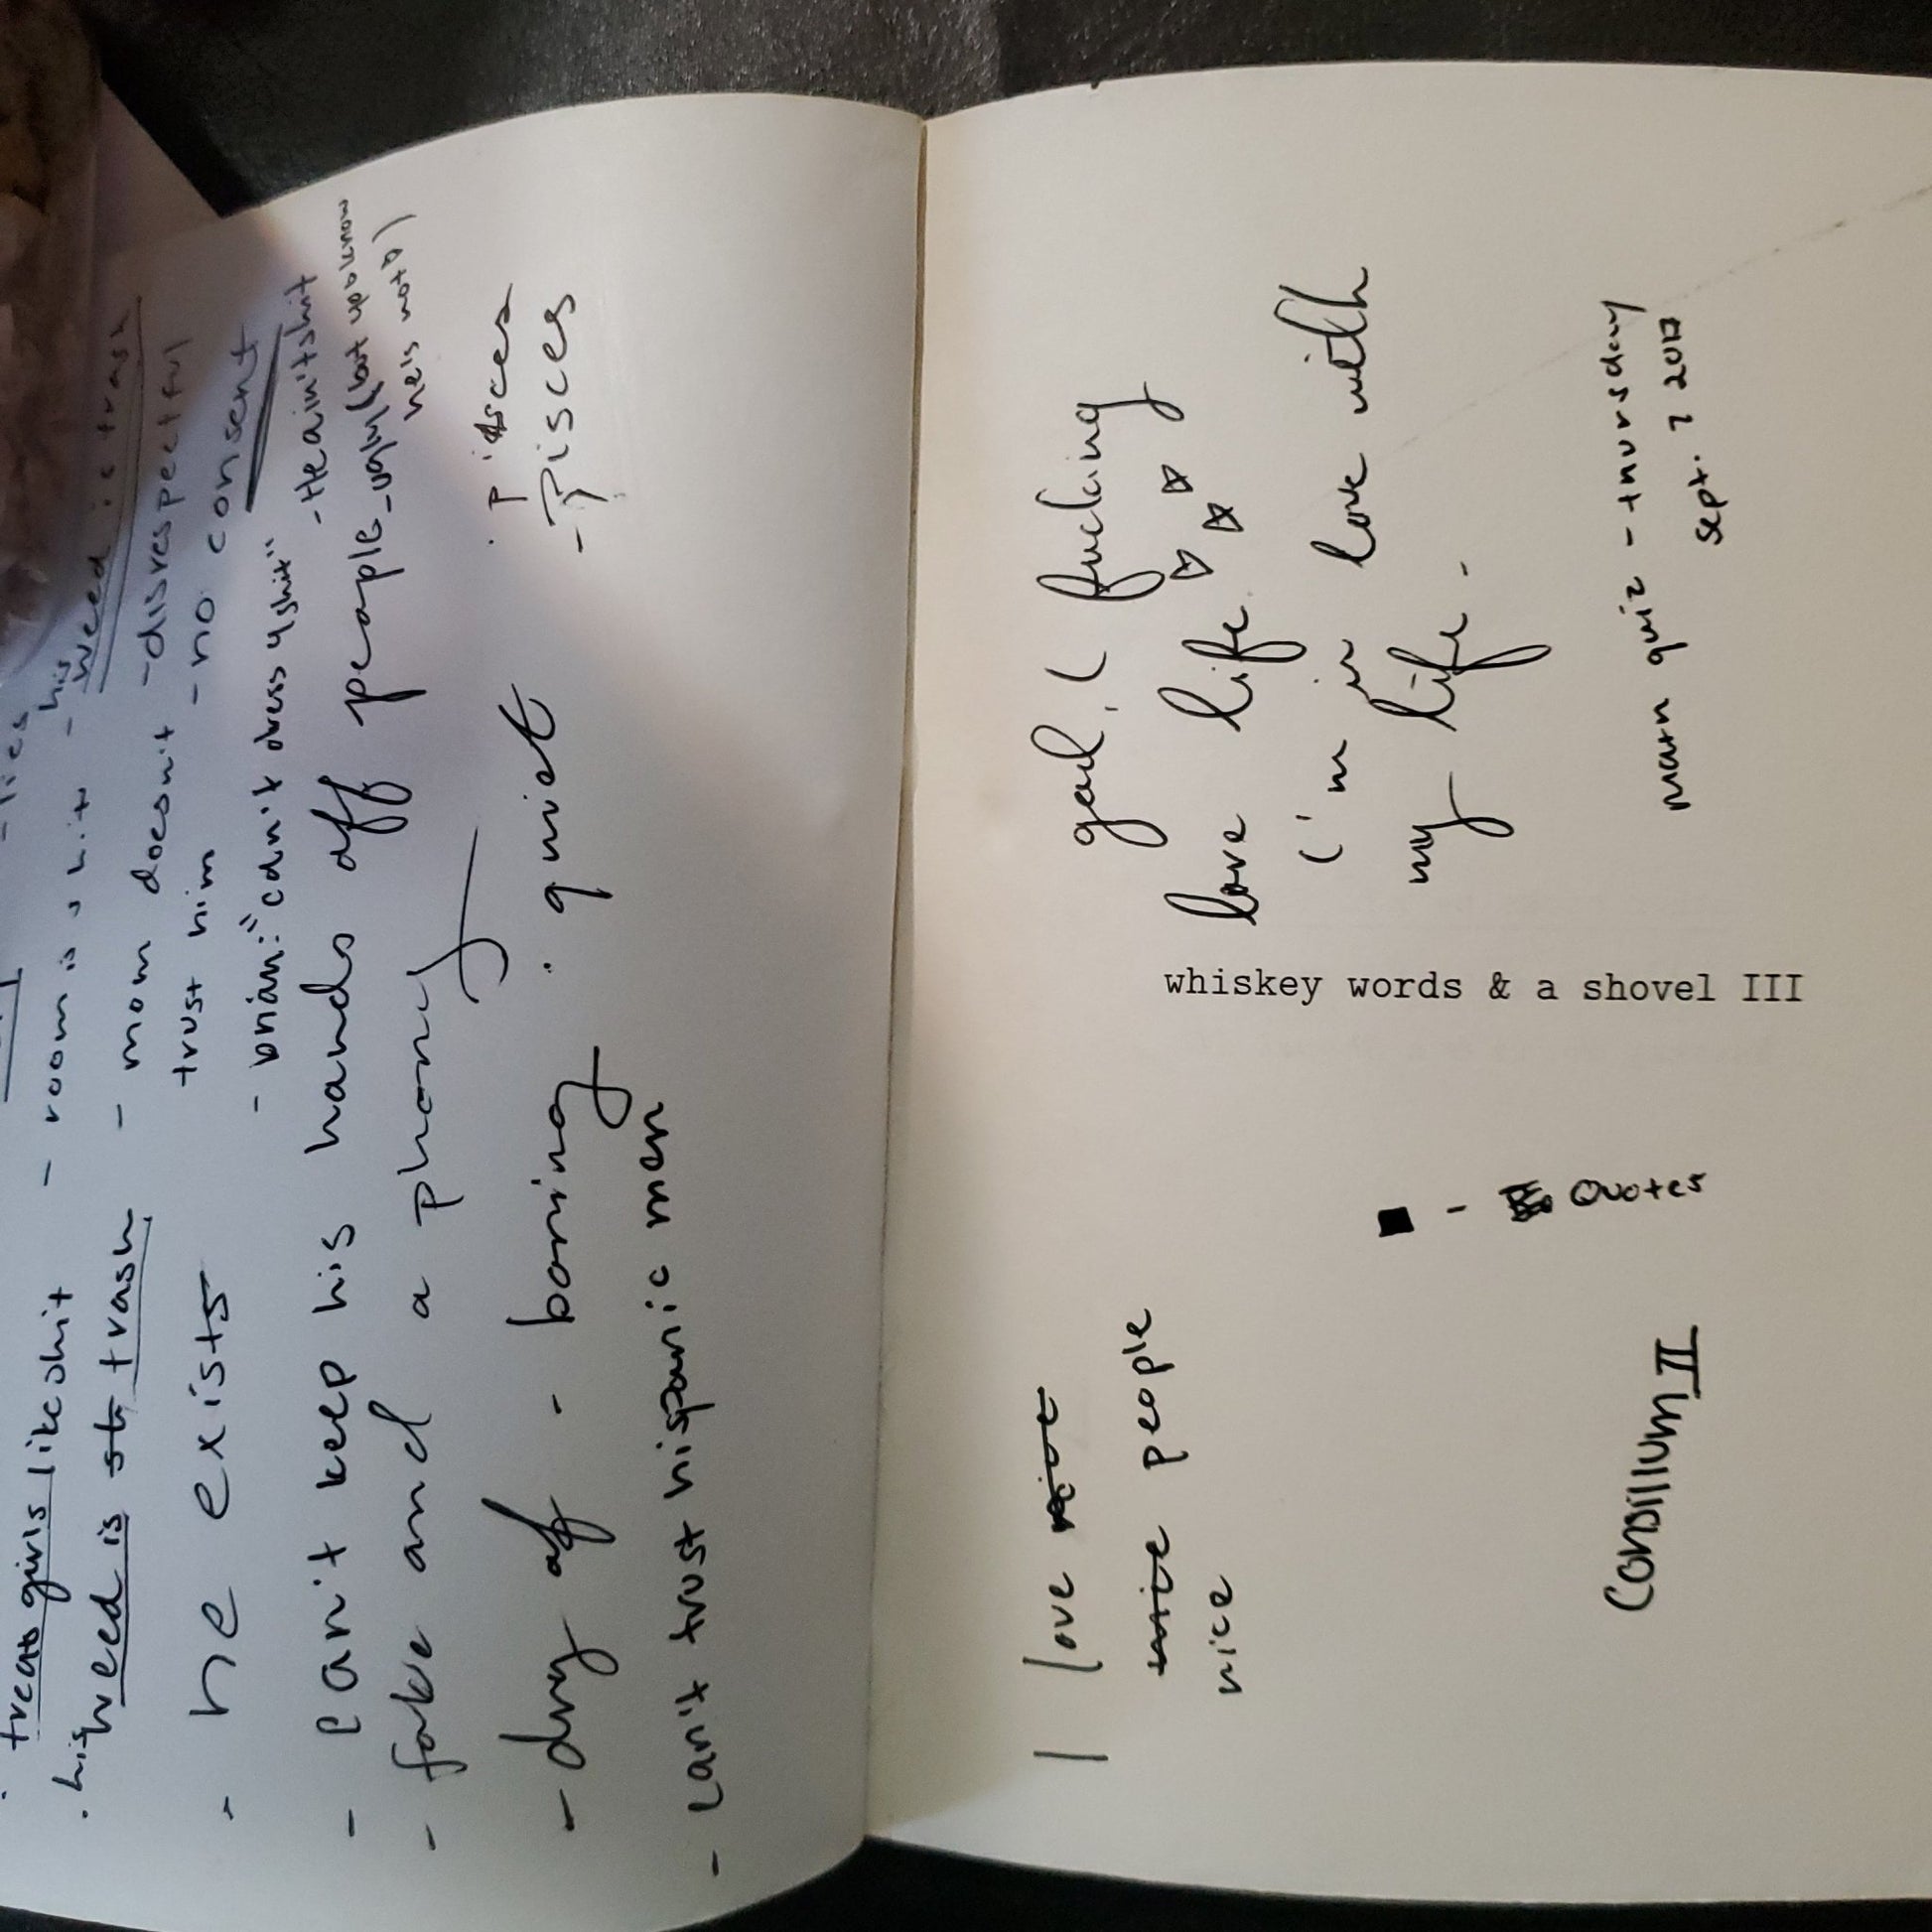 treats girls like shit
. his weed is st trash
- he exists
- room is shit
- mom doesn't
trust him
- his
weed is trash
- disrespectful
- no consent
- brian: "can't dress 4 shit"
- He ain't shit
- can't keep his hands off people
- ugly (but up know
he's not)
- fake and a phony
- dry af - boring . quiet
. Pisces
- Pisces
- can't trust hispanic men
god, I fucking
love life
I'm in love with
my life.
math quiz - thursday
sept. 7 2017
whiskey words & a shovel III
■ - Quotes
I love nice
nice people
nice
Consillum II